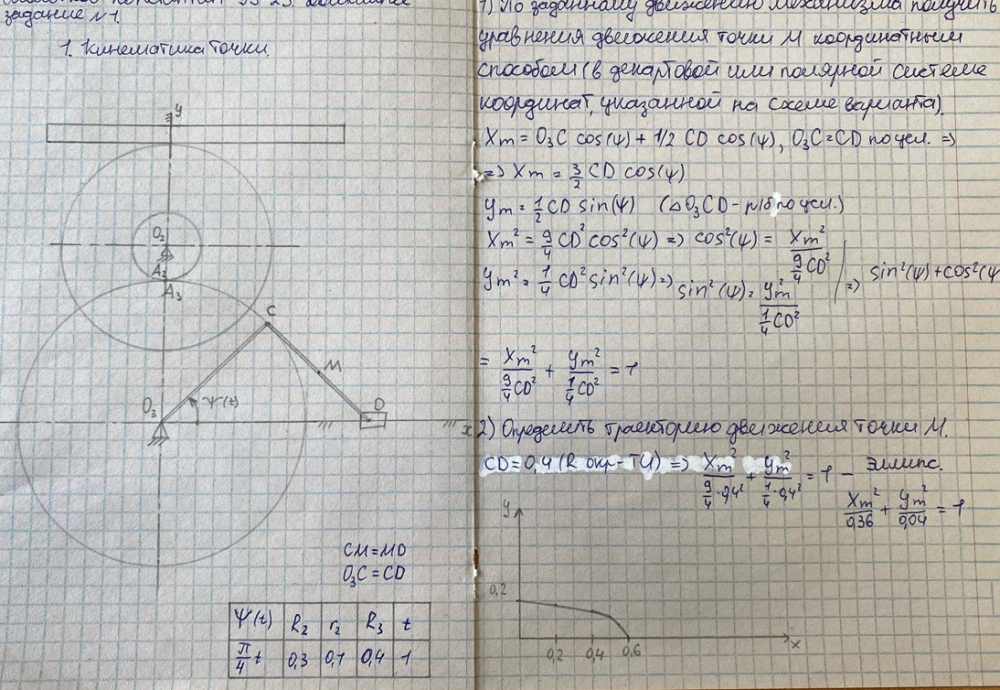 задание №1.
1. Кинематика точки.
y
O₂
A₂
A₃
C
M
O₃
Ψ(t)
D
x
CM=MD
O₃C=CD
Ψ(t) R₂ r₂ R₃ t
π/4 t 0,3 0,1 0,4 1
1) По заданному движению механизма получить
уравнения движения точки М координатным
способом (в декартовой или полярной системе
координат, указанной на схеме варианта).
Xm = O₃C cos(ψ) + 1/2 CD cos(ψ), O₃C=CD по усл. =>
=> Xm = 3/2 CD cos(ψ)
Ym = 1/2 CD sin(ψ) (△O₃CD - р/б по усл.)
Xm² = 9/4 CD² cos²(ψ) => cos²(ψ) = Xm² / (9/4 CD²)
Ym² = 1/4 CD² sin²(ψ) => sin²(ψ) = Ym² / (1/4 CD²) => sin²(ψ)+cos²(ψ
= Xm² / (9/4 CD²) + Ym² / (1/4 CD²) = 1
2) Определить траекторию движения точки М.
CD = 0,4 (R окр-ти) => Xm² / (9/4 · 0,4²) + Ym² / (1/4 · 0,4²) = 1 – эллипс.
Xm² / 0,36 + Ym² / 0,04 = 1
y
0,2
0,2 0,4 0,6
x